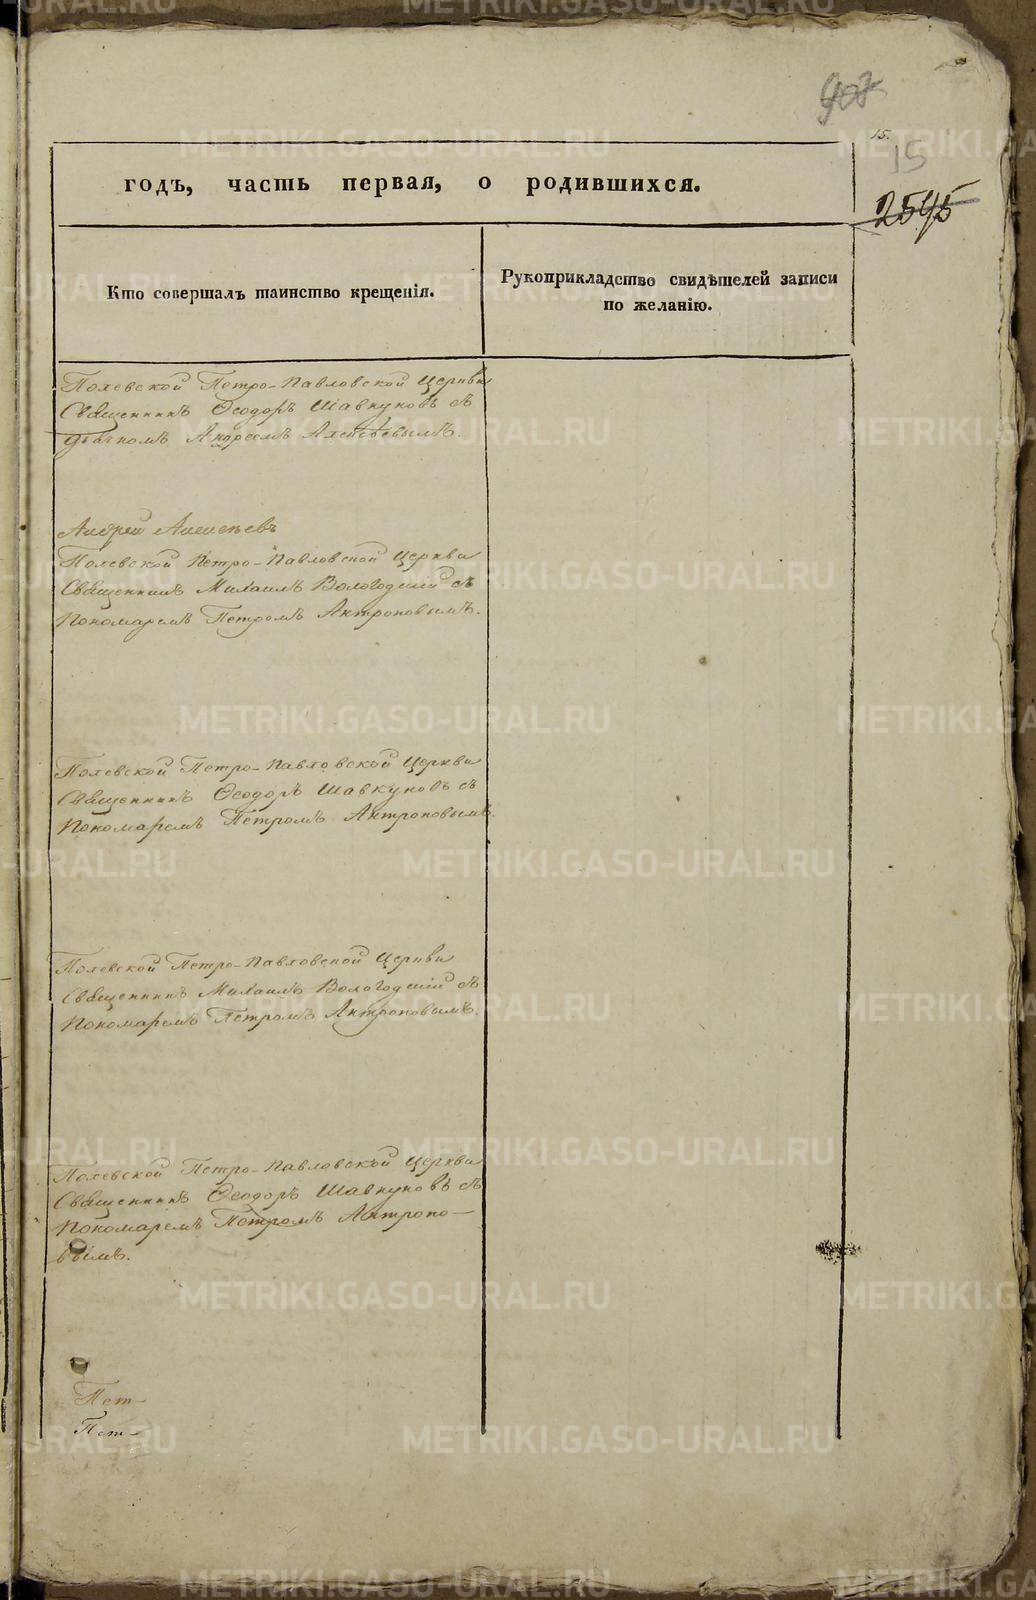 907
15.
15
2545
годъ, часть первая, о родившихся.
Кто совершалъ таинство крещенія.
Рукоприкладство свидѣтелей записи
по желанію.
Полевской Петро-Павловской Церкви
Священникъ Ѳеодоръ Шавкуновъ съ
Дьячкомъ Андреемъ Алексѣевымъ.
Андрей Алексѣевъ
Полевской Петро-Павловской Церкви
Священникъ Михаилъ Вологодскій съ
Пономаремъ Петромъ Антроповымъ.
Полевской Петро-Павловской Церкви
Священникъ Ѳеодоръ Шавкуновъ съ
Пономаремъ Петромъ Антроповымъ.
Полевской Петро-Павловской Церкви
Священникъ Михаилъ Вологодскій съ
Пономаремъ Петромъ Антроповымъ.
Полевской Петро-Павловской Церкви
Священникъ Ѳеодоръ Шавкуновъ съ
Пономаремъ Петромъ Антропо-
вымъ.
Пет-
Пет-
METRIKI.GASO-URAL.RU